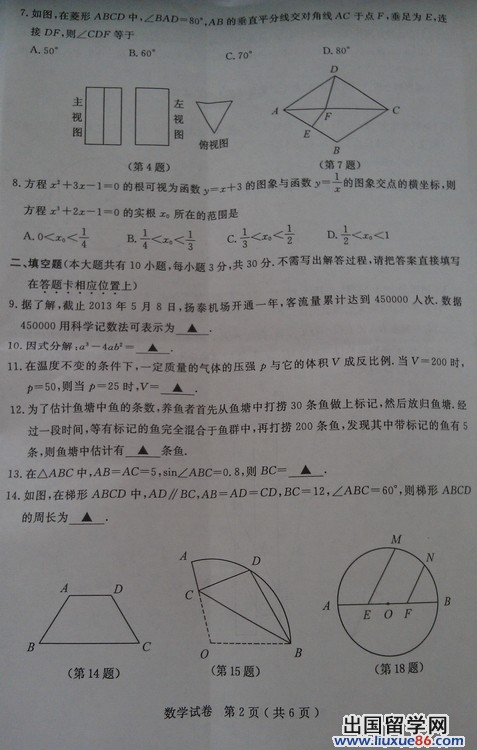 7.如图,在菱形ABCD中,∠BAD=80°,AB的垂直平分线交对角线AC于点F,垂足为E,连
接DF,则∠CDF等于
A.50° B.60° C.70° D.80°
主视图 左视图 俯视图
(第4题)
D A F C E B
(第7题)
8.方程x²+3x-1=0的根可视为函数y=x+3的图象与函数y=1/x的图象交点的横坐标,则
方程x³+2x-1=0的实根x₀所在的范围是
A.0<x₀<1/4 B.1/4<x₀<1/3 C.1/3<x₀<1/2 D.1/2<x₀<1
二、填空题(本大题共有10小题,每小题3分,共30分.不需写出解答过程,请把答案直接填写
在答题卡相应位置上)
9.据了解,截止2013年5月8日,扬泰机场开通一年,客流量累计达到450000人次.数据
450000用科学记数法可表示为 ▲ .
10.因式分解:a³-4ab²= ▲ .
11.在温度不变的条件下,一定质量的气体的压强p与它的体积V成反比例.当V=200时,
p=50,则当p=25时,V= ▲ .
12.为了估计鱼塘中鱼的条数,养鱼者首先从鱼塘中打捞30条鱼做上标记,然后放归鱼塘.经
过一段时间,等有标记的鱼完全混合于鱼群中,再打捞200条鱼,发现其中带标记的鱼有5
条,则鱼塘中估计有 ▲ 条鱼.
13.在△ABC中,AB=AC=5,sin∠ABC=0.8,则BC= ▲ .
14.如图,在梯形ABCD中,AD∥BC,AB=AD=CD,BC=12,∠ABC=60°,则梯形ABCD
的周长为 ▲ .
A D B C
(第14题)
A D C O B
(第15题)
M N A E O F B
(第18题)
数学试卷 第2页(共6页)
出国留学网
www.liuxue86.com